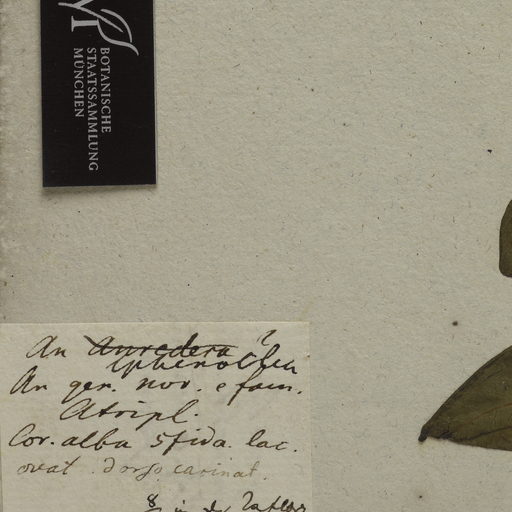 BOTANISCHE
STAATSSAMMLUNG
MÜNCHEN
An Anredera ?
An gen. nov. e fam.
Atripl.
Cor. alba 5fida. lac.
ovat. dorso carinat.